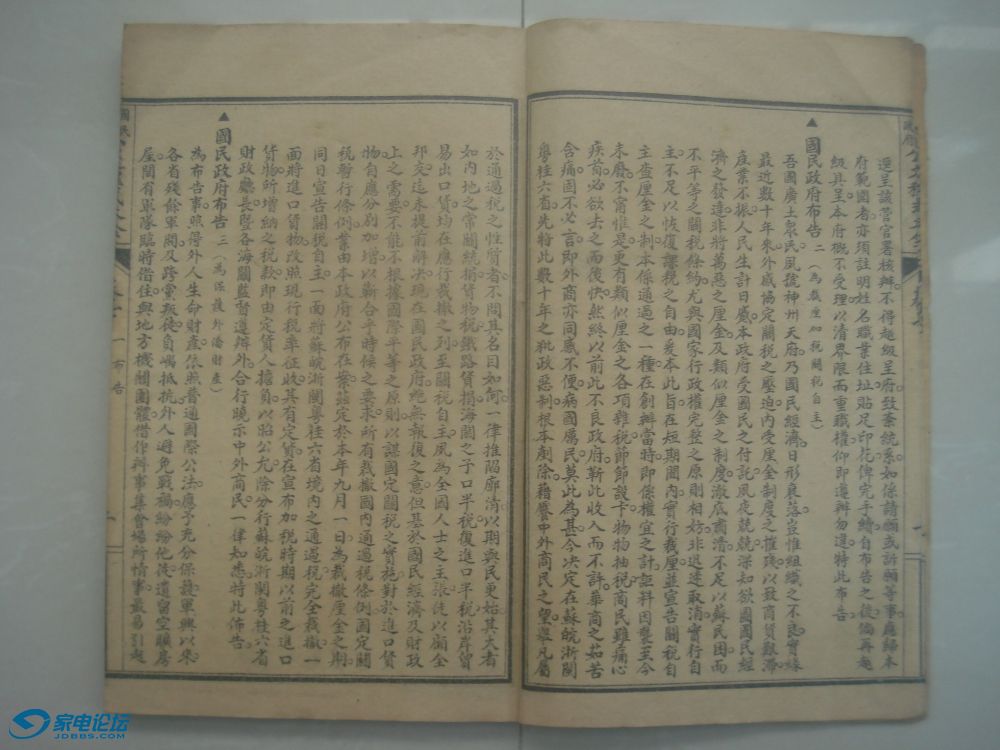 逕呈該管官署核辦不得越級呈府致紊統系如係請願或訴願等事應歸本
府範圍者亦須註明姓名職業住址貼足印花俾完手續自布告之後倘再越
級具呈本府概不受理以清界限而重職權仰即遵辦勿違特此布告
▲國民政府布告二(為裁厘加稅關稅自主)
吾國廣土衆民風號神州天府乃國民經濟日形衰落豈惟組織之不良實緣
最近數十年來外感協定關稅之壓迫內受厘金制度之摧殘以致商貨艱滯
產業不振人民生計日蹙本政府受國民之付託夙夜兢兢深知欲國國民經
濟之發達非將萬惡之厘金及類似厘金之制度澈底肅清不足以蘇民困而
不平等之關稅條約尤與國家行政權完整之原則相妨非迅速取消實行自
主不足以恢復課稅之自由爰本此旨在短期間內實行裁厘並宣告關稅自
主查厘金之制本係通過之一種在創辦當時即係權宜之計詎料因襲至今
未廢不甯惟是更有類似厘金之各項雜稅節節設卡物物抽稅商民雖痛心
疾首必欲去之而後快然終以前此不良政府靳此收入而不許華商之茹苦
含痛固不必言即外商亦同感不便病國厲民莫此為甚今決定在蘇皖浙閩
粵桂六省先將此數十年之秕政惡制根本剷除藉饜中外商民之望舉凡屬
於通過稅之性質者不問其名目如何一律推陷廓清以期與民更始其大者
如內地之常關統捐貨物稅鐵路貨捐海關之子口半稅復進口半稅沿岸貿
易出口貨均在應行裁撤之列至關稅自主夙為全國人士之主張徒以顧全
邦交迄未提前解決現在國民政府絕無報復之意但基於國民經濟及財政
上之需要不能不根據國際平等之原則以謀國定關稅之實施對於進口貨
物自應分別加增以蘄合乎時候之要求所有裁撤國內通過稅條例國定關
稅暫行條例業由本政府公布在案茲定於本年九月一日為裁撤厘金之期
同日宣告關稅自主一面將蘇皖浙閩粵桂六省境內之通過稅完全裁撤一
面將進口貨物改照現行稅率征收其有定貨在宣布加稅時期以前之進口
貨物所增納之稅款即由定貨人擔負以昭公允除分行蘇皖浙閩粵桂六省
財政廳長暨各海關監督遵辦外合行曉示中外商民一律知悉特此佈告
▲國民政府布告三(為保護外僑財產)
為布告事照得外人生命財產依照普通國際公法應予充分保護軍興以來
各省殘餘軍閥及跨黨叛徒負嵎抵抗外人避免戰禍紛紛他徙遺留空曠房
屋間有軍隊臨時借住與地方機關團體借作辦事集會場所情事最易引起
一 布告
家电论坛
JDBBS.COM